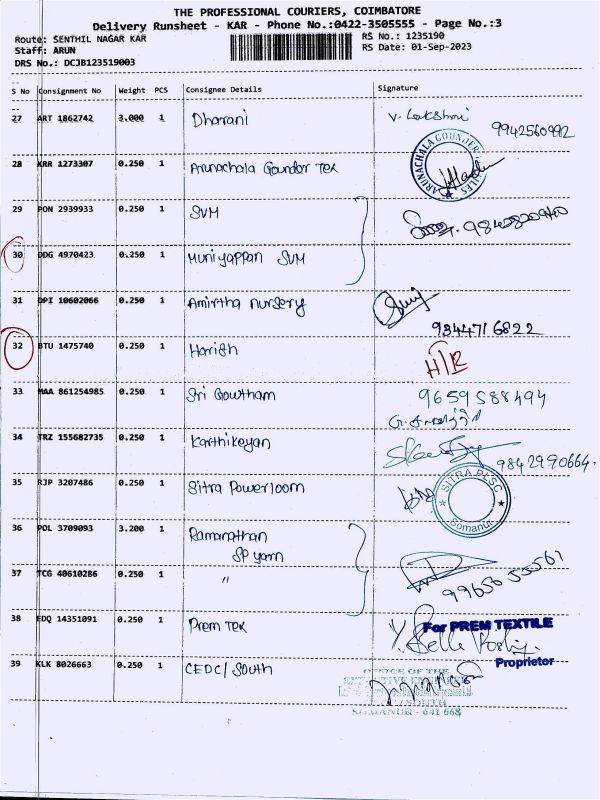 THE PROFESSIONAL COURIERS, COIMBATORE
Delivery Runsheet - KAR - Phone No.:0422-3505555 - Page No.:3
Route: SENTHIL NAGAR KAR
RS No.: 1235190
Staff: ARUN
RS Date: 01-Sep-2023
DRS No.: DCJB123519003
S No Consignment No Weight PCS Consignee Details Signature
27 ART 1862742 3.000 1 Dharani V. Lakshmi
9942560992
28 KRR 1273307 0.250 1 Arunachala Goundar Tex
ARUNACHALA GOUNDER
29 PON 2939933 0.250 1 SVM
30 DDG 4970423 0.250 1 Muniyappan SVM
31 DPI 10602066 0.250 1 Amirtha nursery
9344716822
32 BTU 1475740 0.250 1 Harish H/R
33 MAA 861254985 0.250 1 Sri Gowtham 9659588494
34 TRZ 155682735 0.250 1 Karthikeyan
9842990664.
35 RJP 3207486 0.250 1 Sitra Powerloom
SITRA PLSC
Somanur
36 POL 3709093 3.200 1 Ramanathan
SP yarn
37 TCG 40610286 0.250 1 "
38 EDQ 14351091 0.250 1 Prem Tex
For PREM TEXTILE
Proprietor
39 KLK 8026663 0.250 1 CEDC/South
OFFICE OF THE
SOUTH
SOMANUR - 641 668